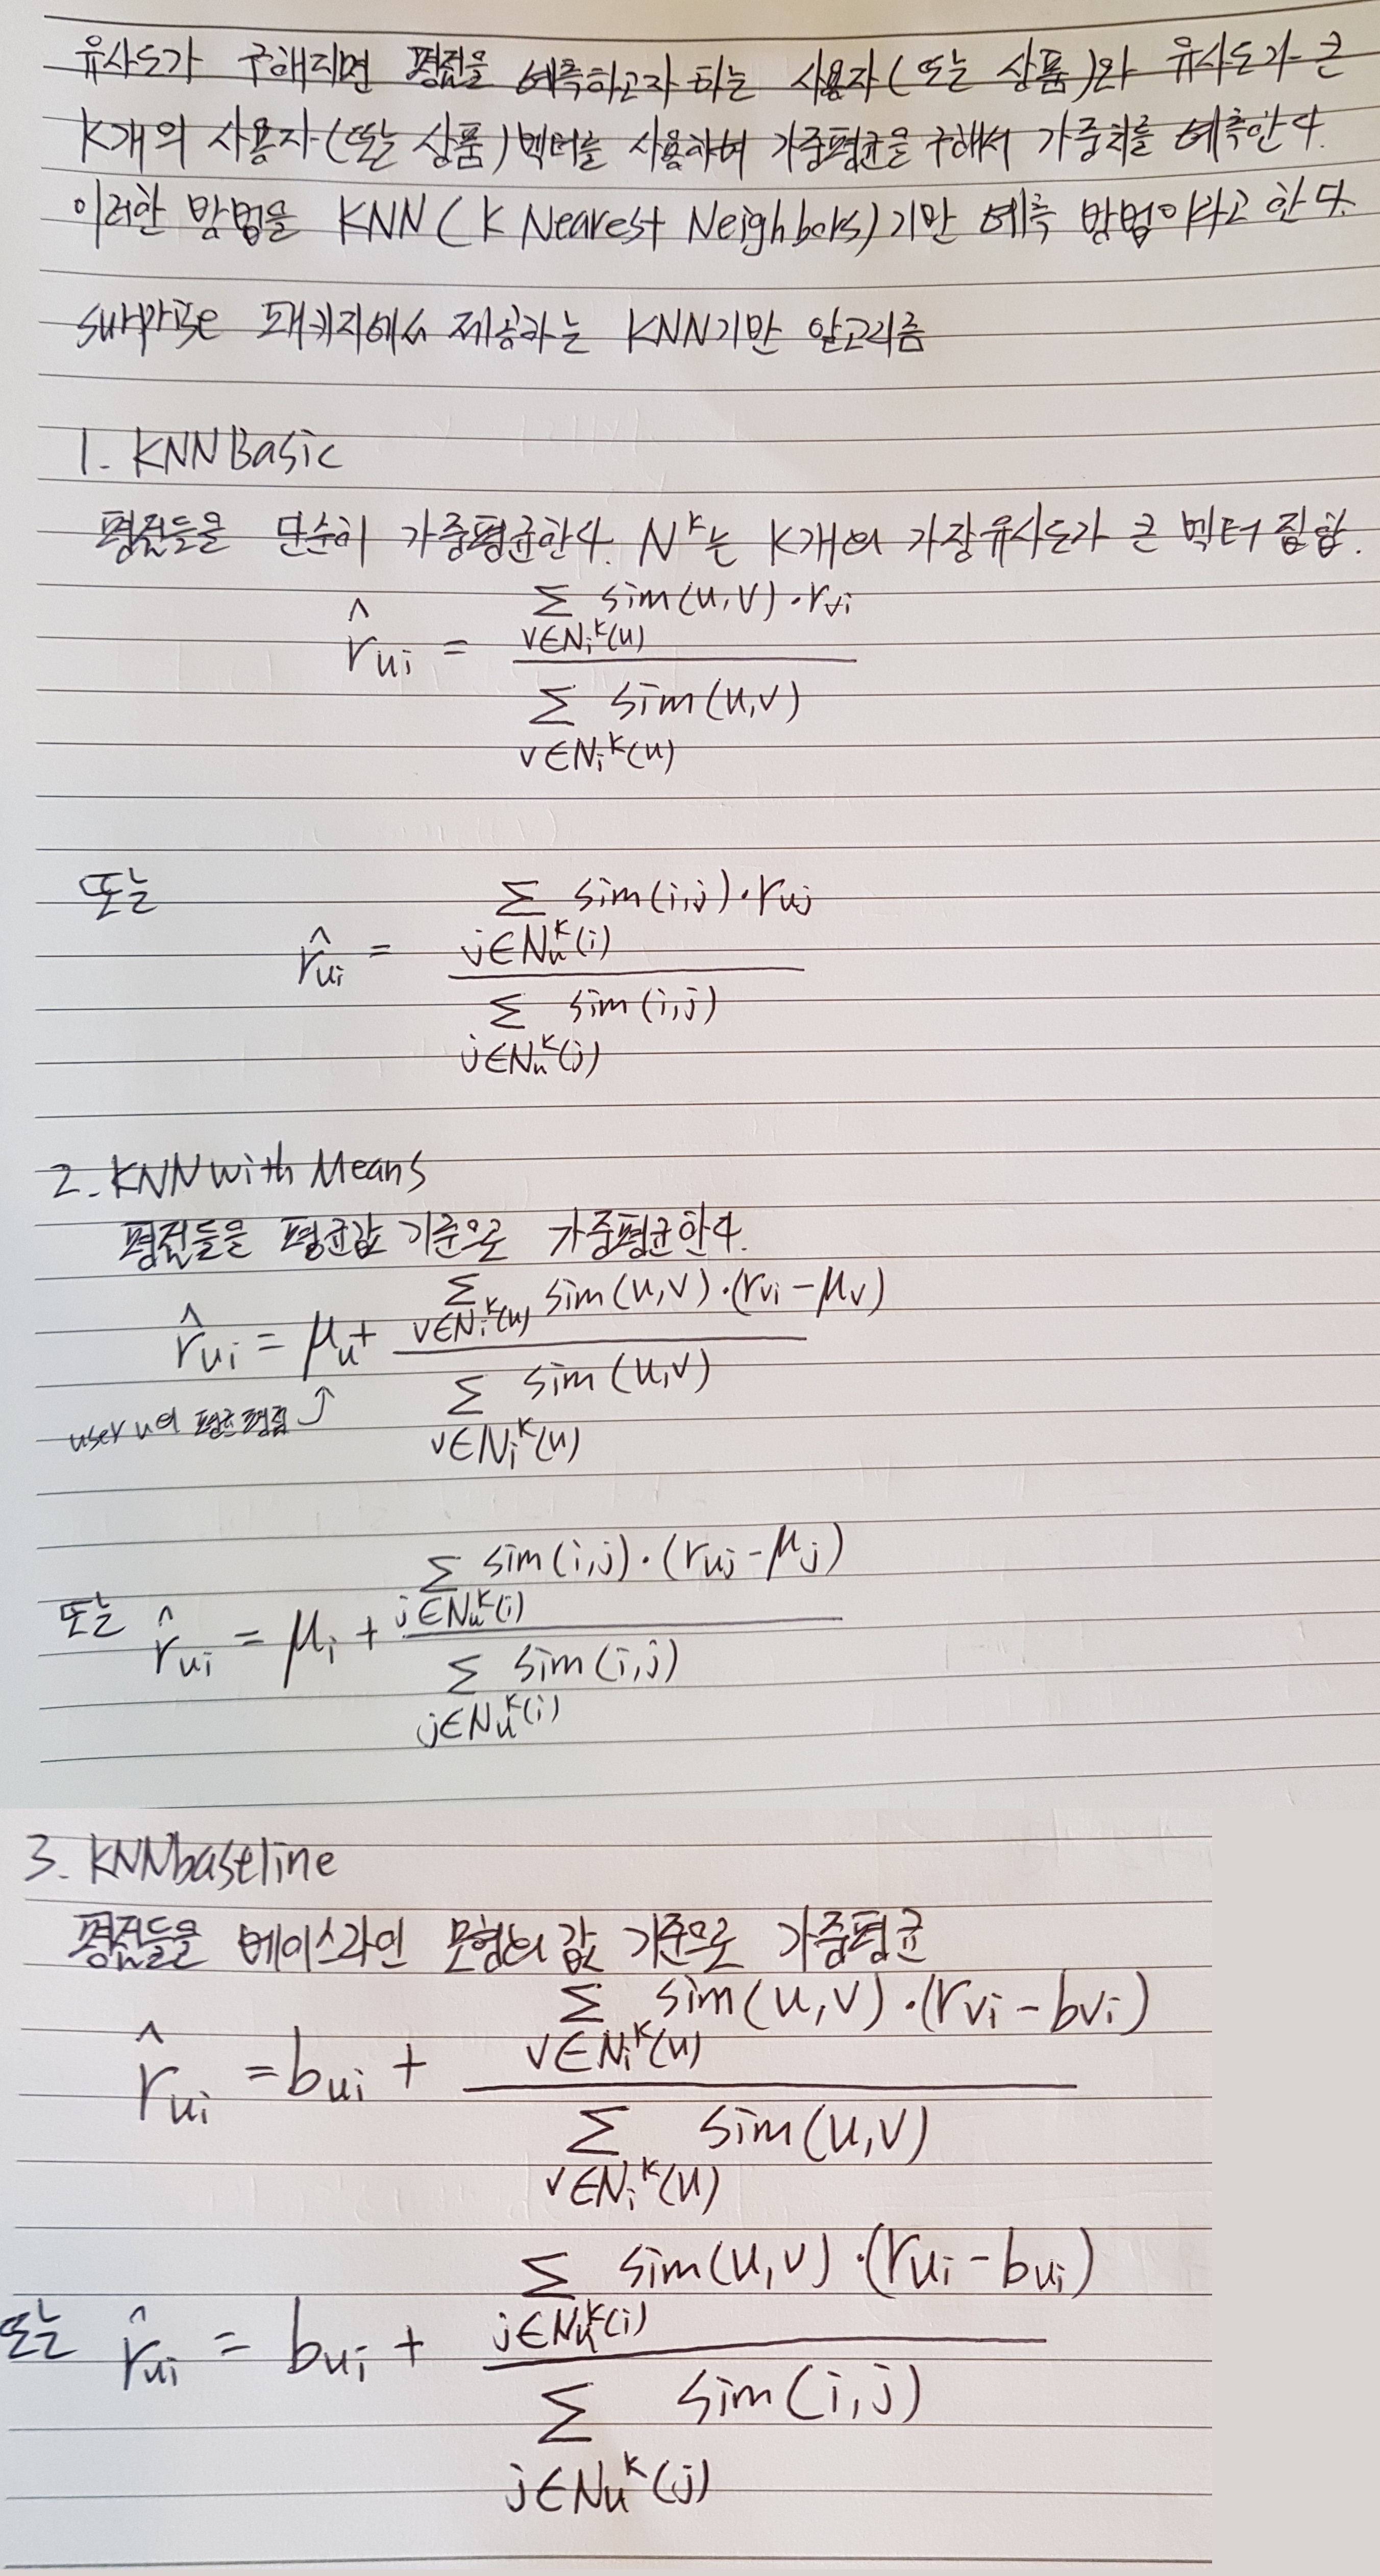 유사도가 구해지면 평점을 예측하고자 하는 사용자(또는 상품)와 유사도가 큰
K개의 사용자(또는 상품)벡터를 사용하여 가중평균을 구해서 가중치를 예측한다.
이러한 방법을 KNN(K Nearest Neighbors)기반 예측 방법이라고 한다.
surprise 패키지에서 제공하는 KNN기반 알고리즘
1. KNNBasic
평점들을 단순히 가중평균한다. N^k는 K개의 가장유사도가 큰 벡터 집합.
r̂_ui = Σ_{v∈N_i^k(u)} sim(u,v)·r_vi / Σ_{v∈N_i^k(u)} sim(u,v)
또는
r̂_ui = Σ_{j∈N_u^k(i)} sim(i,j)·r_uj / Σ_{j∈N_u^k(j)} sim(i,j)
2. KNNwith Means
평점들을 평균값 기준으로 가중평균한다.
r̂_ui = μ_u + Σ_{v∈N_i^k(u)} sim(u,v)·(r_vi − μ_v) / Σ_{v∈N_i^k(u)} sim(u,v)
user u의 평균평점 ↑
또는 r̂_ui = μ_i + Σ_{j∈N_u^k(i)} sim(i,j)·(r_uj − μ_j) / Σ_{j∈N_u^k(i)} sim(i,j)
3. KNNbaseline
평점들을 베이스라인 모형의 값 기준으로 가중평균
r̂_ui = b_ui + Σ_{v∈N_i^k(u)} sim(u,v)·(r_vi − b_vi) / Σ_{v∈N_i^k(u)} sim(u,v)
또는 r̂_ui = b_ui + Σ_{j∈N_u^k(i)} sim(u,v)·(r_ui − b_ui) / Σ_{j∈N_u^k(j)} sim(i,j)